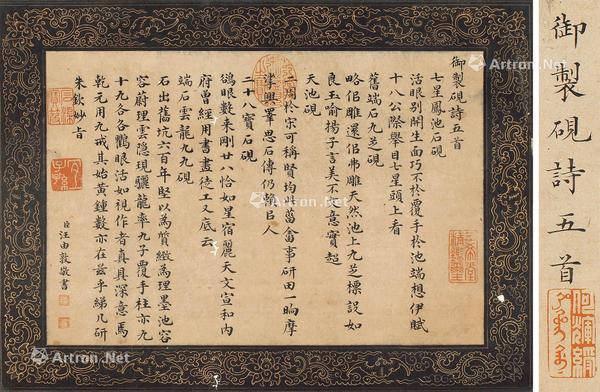 御製硯詩五首
七星鳳池石硯
活眼別開生面巧不於覆手於池端想伊賦
十八公際舉目七星頭上看
舊端石九芝硯
略佀雕還佀弗雕天然池上九芝標設如
良玉喻揚子言美不言意實超
天池硯
一周於宋可稱賢均菑畬事研田一晌摩
挲興睪思石傳仍賴巨人
二十八寳石硯
鴝眼數來剛廿八恰如星宿麗天文宣和內
府曾經用書畫徒工又底云
端石雲龍九九硯
石出舊坑六百年堅以為質緻為理墨池容
容蔚理雲隱現驪龍率九子覆手柱亦九
十九各各鸜眼活如視作者真具深意焉
乾元用九戒其始黃鍾數亦在茲乎綈几研
朱欽妙旨
臣汪由敦敬書
御製硯詩五首
Artron.Net
Artron.Net
Artron.Net
Artron.Net